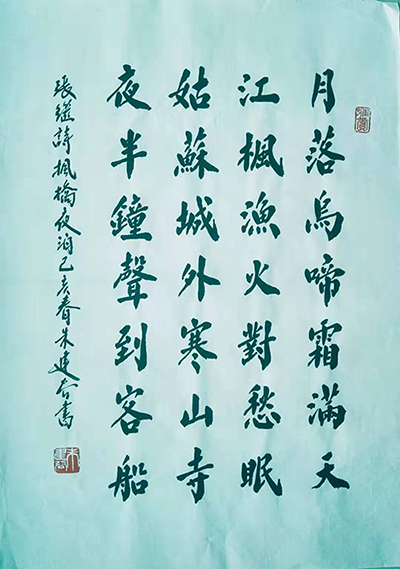 月落烏啼霜滿天
江楓漁火對愁眠
姑蘇城外寒山寺
夜半鐘聲到客船
張繼詩楓橋夜泊己亥春朱建书書